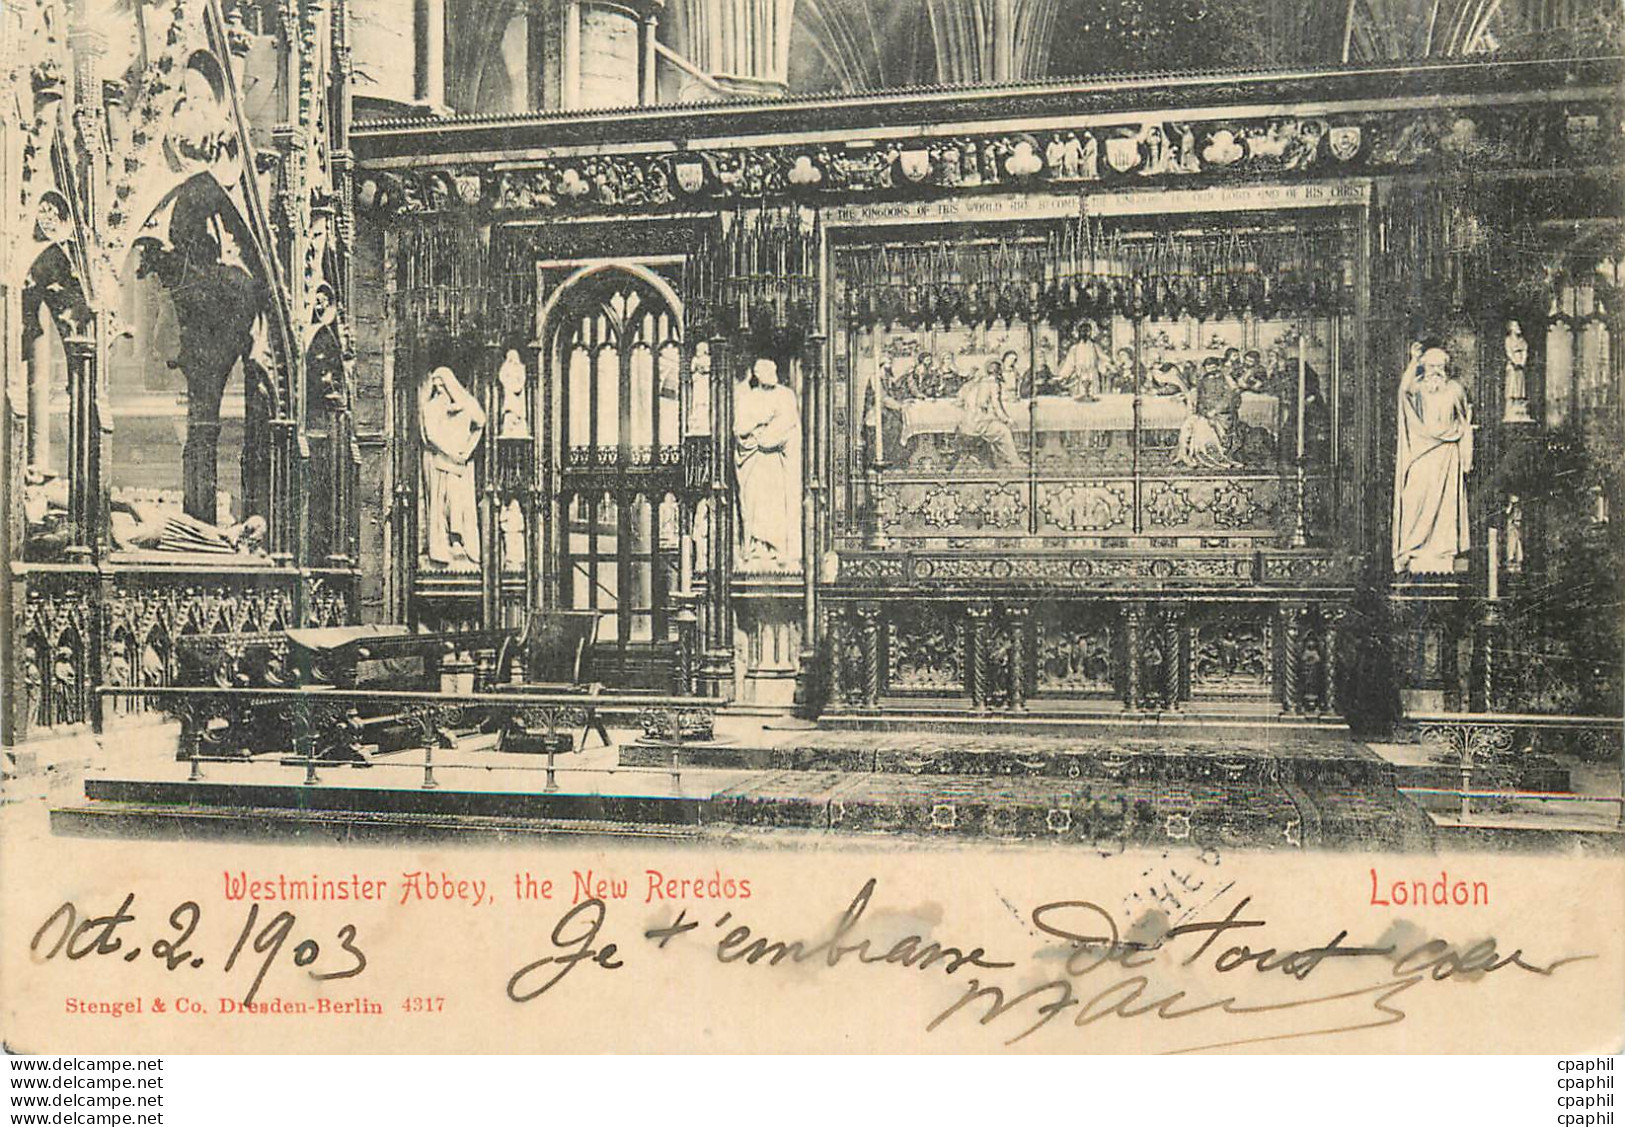 + THE KINGDOMS OF THIS WORLD ARE BECOME THE KINGDOMS OF OUR LORD AND OF HIS CHRIST
Westminster Abbey, the New Reredos
London
Oct. 2. 1903
Je t'embrasse de tout coeur
Stengel & Co. Dresden-Berlin 4317
www.delcampe.net
www.delcampe.net
www.delcampe.net
www.delcampe.net
cpaphil
cpaphil
cpaphil
cpaphil